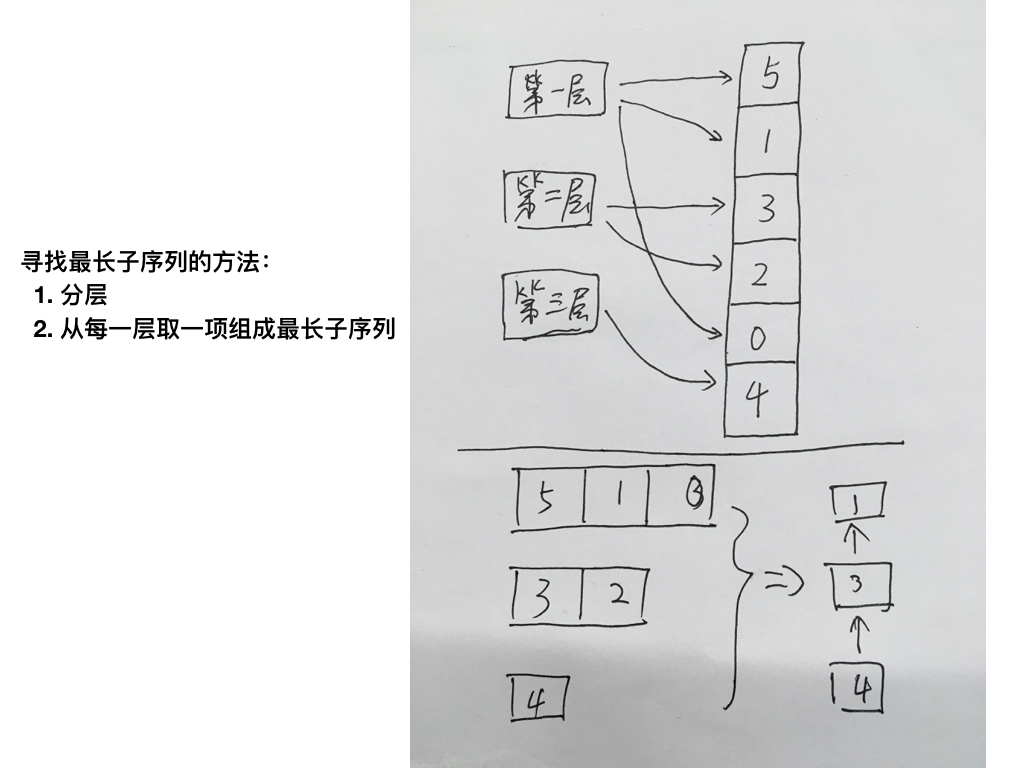 寻找最长子序列的方法：
1. 分层
2. 从每一层取一项组成最长子序列
第一层
第二层
第三层
5
1
3
2
0
4
5 1 0
3 2
4
1
3
4